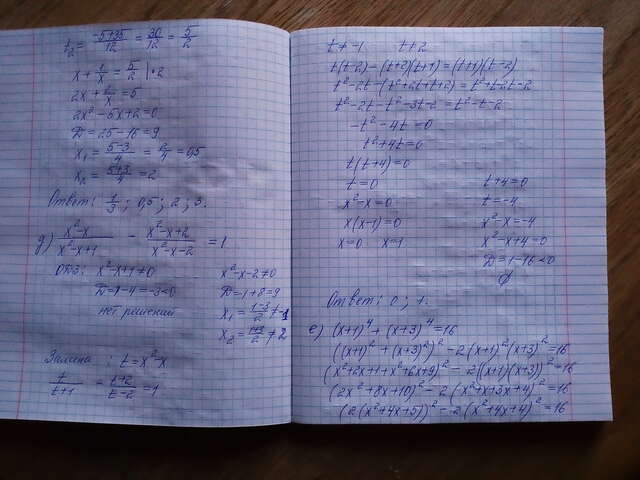 t₂ = (-5+35)/12 = 30/12 = 5/2
x + 1/x = 5/2 |·2
2x + 2/x = 5
2x² - 5x + 2 = 0
D = 25 - 16 = 9
x₁ = (5-3)/4 = 2/4 = 0,5
x₂ = (5+3)/4 = 2
Ответ: 1/3; 0,5; 2; 3.
д) (x²-x)/(x²-x+1) - (x²-x+2)/(x²-x-2) = 1
ОДЗ: x²-x+1≠0
D = 1-4 = -3<0
нет решений
x²-x-2≠0
D = 1+8 = 9
x₁ = (1-3)/2 ≠ -1
x₂ = (1+3)/2 ≠ 2
Замена: t = x²-x
t/(t+1) - (t+2)/(t-2) = 1
t≠-1 t≠2
t(t-2)-(t+2)(t+1)=(t+1)(t-2)
t²-2t-(t²+2t+t+2)=t²+t-2t-2
t²-2t-t²-3t-2=t²-t-2
-t²-4t=0
t²+4t=0
t(t+4)=0
t=0
x²-x=0
x(x-1)=0
x=0 x=1
t+4=0
t=-4
x²-x=-4
x²-x+4=0
D=1-16<0
∅
Ответ: 0; 1.
е) (x+1)⁴+(x+3)⁴=16
((x+1)²+(x+3)²)²-2(x+1)²(x+3)²=16
(x²+2x+1+x²+6x+9)²-2((x+1)(x+3))²=16
(2x²+8x+10)²-2(x²+x+3x+4)²=16
(2(x²+4x+5))²-2(x²+4x+4)²=16